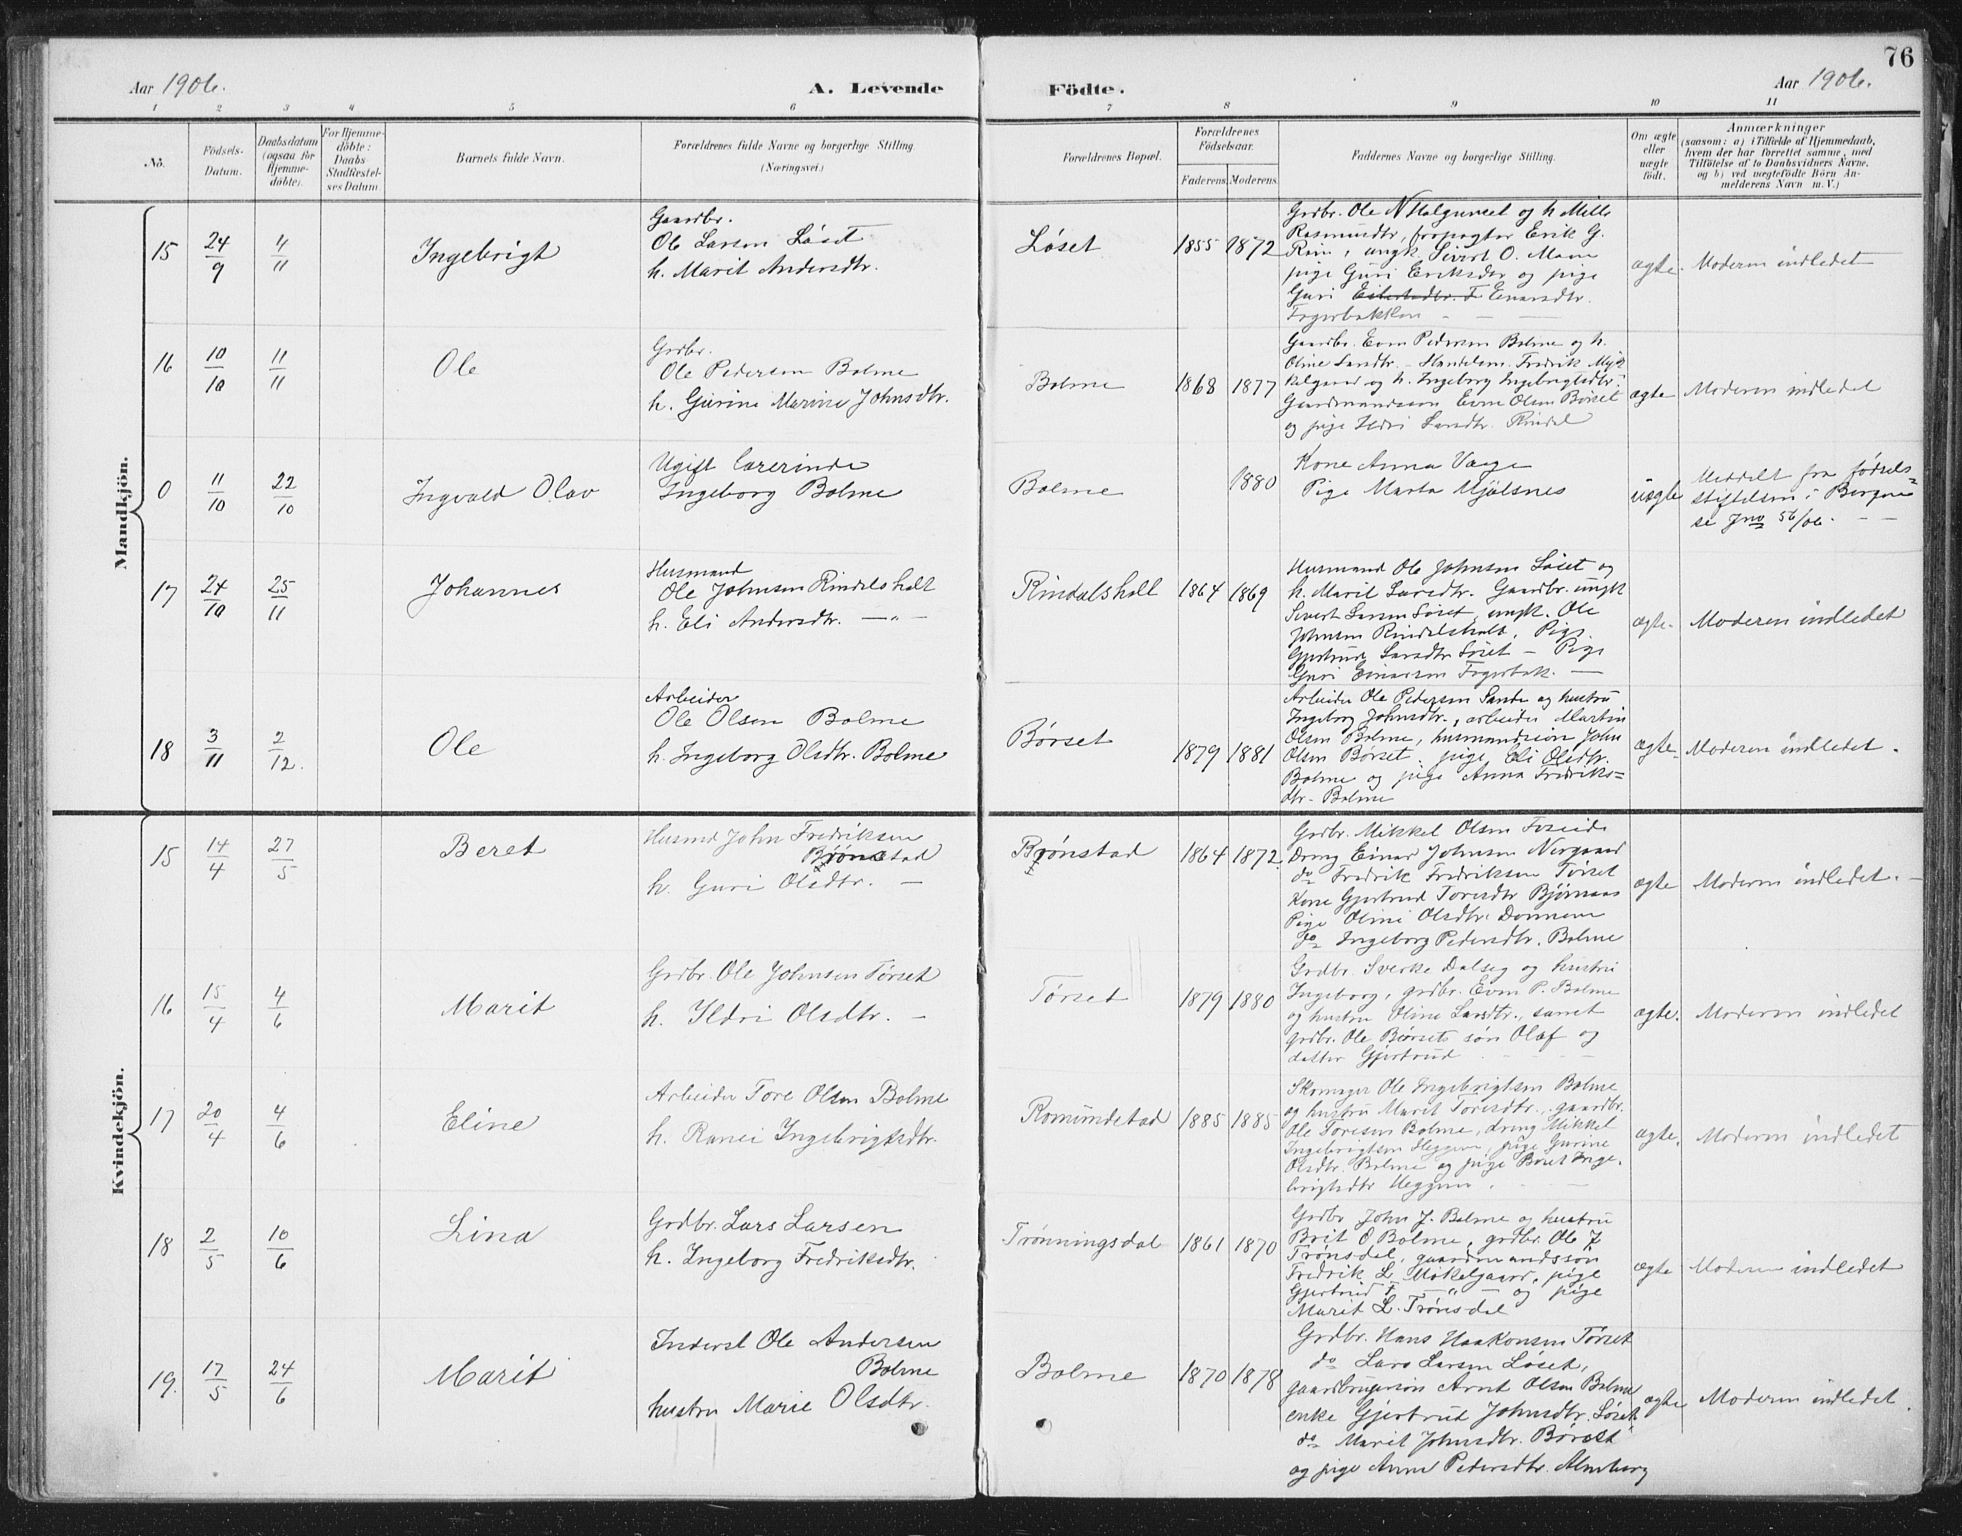 76
Aar 1906. A. Levende Födte. Aar 1906.
1 2 3 4 5 6 7 8 9 10 11
No. Födsels-Datum. Daabsdatum (ogsaa for Hjemme-döbte). For Hjemme-döbte: Daabs-Stadfæstel-ses Datum Barnets fulde Navn. Forældrenes fulde Navne og borgerlige Stilling. (Næringsvei.) Forældrenes Bopæl. Forældrenes Födselsaar. Faderens. Moderens. Faddernes Navne og borgerlige Stilling. Om ægte eller uægte födt. Anmærkninger (saasom: a) i Tilfælde af Hjemmedaab, hvem der har forrettet samme, med Tilföielse af to Daabsvidners Navne, og b) ved uægtefödte Börn An-melderens Navn m. V.)
Mandkjön.
15 24/9 4/11 Ingebrigt
Gaardbr.
Ole Larsen Løset
h. Marit Andersdtr.
Løset 1855 1872
Grdbr. Ole N Halgunset og h Mille
Rasmusdtr, forpagter Erik G.
Rein, ungk. Sivert O. Moen
pige Guri Eriksdtr og pige
Guri Einarsdtr.
Fagerbakken
ægte. Moderen indledet
16 10/10 11/11 Ole
Grdbr.
Ole Pedersen Bolme
h. Gurine Marine Johnsdtr.
Bolme 1868 1877
Gaardbr. Even Pedersen Bolme og h.
Oline Larsdtr. Handelsm. Fredrik Myk
kelgaard og h. Ingeborg Ingebrigtsdtr.
Gaardmandssøn Even Olsen Børset
og pige Ildri Larsdtr. Rindal
ægte Moderen indledet
0 11/10 22/10 Ingvald Olav
Ugift lærerinde
Ingeborg Bolme
Bolme 1880
Kone Anna Vaage
Pige Marta Mjølsnes
uægte Meddelt fra fødsels
stiftelsen i Bergen
se Jno 56/06.
17 24/10 25/11 Johannes
Husmand
Ole Johnsen Rindalshall
h. Eli Andersdtr. —"—
Rindalshall 1864 1869
Husmand Ole Johnsen Løset og
h. Marit Larsdtr. Gaardbr. ungk
Sivert Larsen Løset, ungk. Ole
Johnsen Rindalshall. Pige
Gjertrud Larsdtr Løset – Pige
Guri Einarsen Fagerbak.
ægte. Moderen indledet
18 3/11 2/12. Ole
Arbeider
Ole Olsen Bolme
h. Ingeborg Olsdtr. Bolme
Børset 1879 1881
Arbeider Ole Pedersen Sande og hustru
Ingeborg Johnsdtr., arbeider Martin
Olsen Bolme, husmandssøn John
Olsen Børset, pige Eli Olsdtr.
Bolme og pige Anna Fredriks-
dtr. Bolme
ægte. Moderen indledet.
Kvindekjön.
15 14/4 27/5 Beret
Husmd John Fredriksen
Brønstad
h. Guri Olsdtr. —
Brønstad 1864 1872.
Grdbr. Mikkel Olsen Foseide
Dreng Einar Johnsen Nergaard
do Fredrik Fredriksen Tørset
Kone Gjertrud Toresdtr Bjørnaas
Pige Oline Olsdtr.
do Ingeborg Pedersdtr. Bolme
ægte Moderen indledet.
16 15/4 4/6 Marit
Grdbr. Ole Johnsen Tørset
h. Ildri Olsdtr. —
Tørset 1879 1880
Grdbr. Sverke Dalseg og hustru
Ingeborg, grdbr. Even P. Bolme
og hustru Oline Larsdtr., samt
grdbr. Ole Børsets søn Olaf og
datter Gjertrud
ægte. Moderen indledet
17 20/4 4/6 Eline
Arbeider Tore Olsen Bolme
h. Ranei Ingebrigtsdtr.
Romundstad 1885 1885
Skomager Ole Ingebrigtsen Bolme
og hustru Marit Toresdtr., gaardbr.
Ole Toresen Bolme, dreng Mikkel
Ingebrigtsen Heggem, pige Gurine
Olsdtr. Bolme og pige Beret Inge-
brigtsdtr Heggem.
ægte. Moderen indledet
18 2/5 10/6 Lina
Grdbr. Lars Larsen
h. Ingeborg Fredriksdtr.
Trønningsdal 1861 1870
Grdbr John J. Bolme og hustru
Brit O Bolme, grdbr. Ole J
Trønsdal, gaardmandssøn
Fredrik L. Møkelgaard, pige
Gjertrud F. —"— og pige
Marit L. Trønsdal
ægte Moderen indledet
19. 17/5 24/6 Marit
Inderst Ole Andersen
Bolme
hustru Marie Olsdtr.
Bolme 1870 1878
Grdbr. Hans Haakonsen Tørset
do Lars Larsen Løset,
gaardbrugersøn Arnt Olsen Bolme
enke Gjertrud Johnsdtr. Løset
do Marit Johnsdtr. Børset
og pige Anne Pedersdtr. Almberg
ægte Moderen indledet.